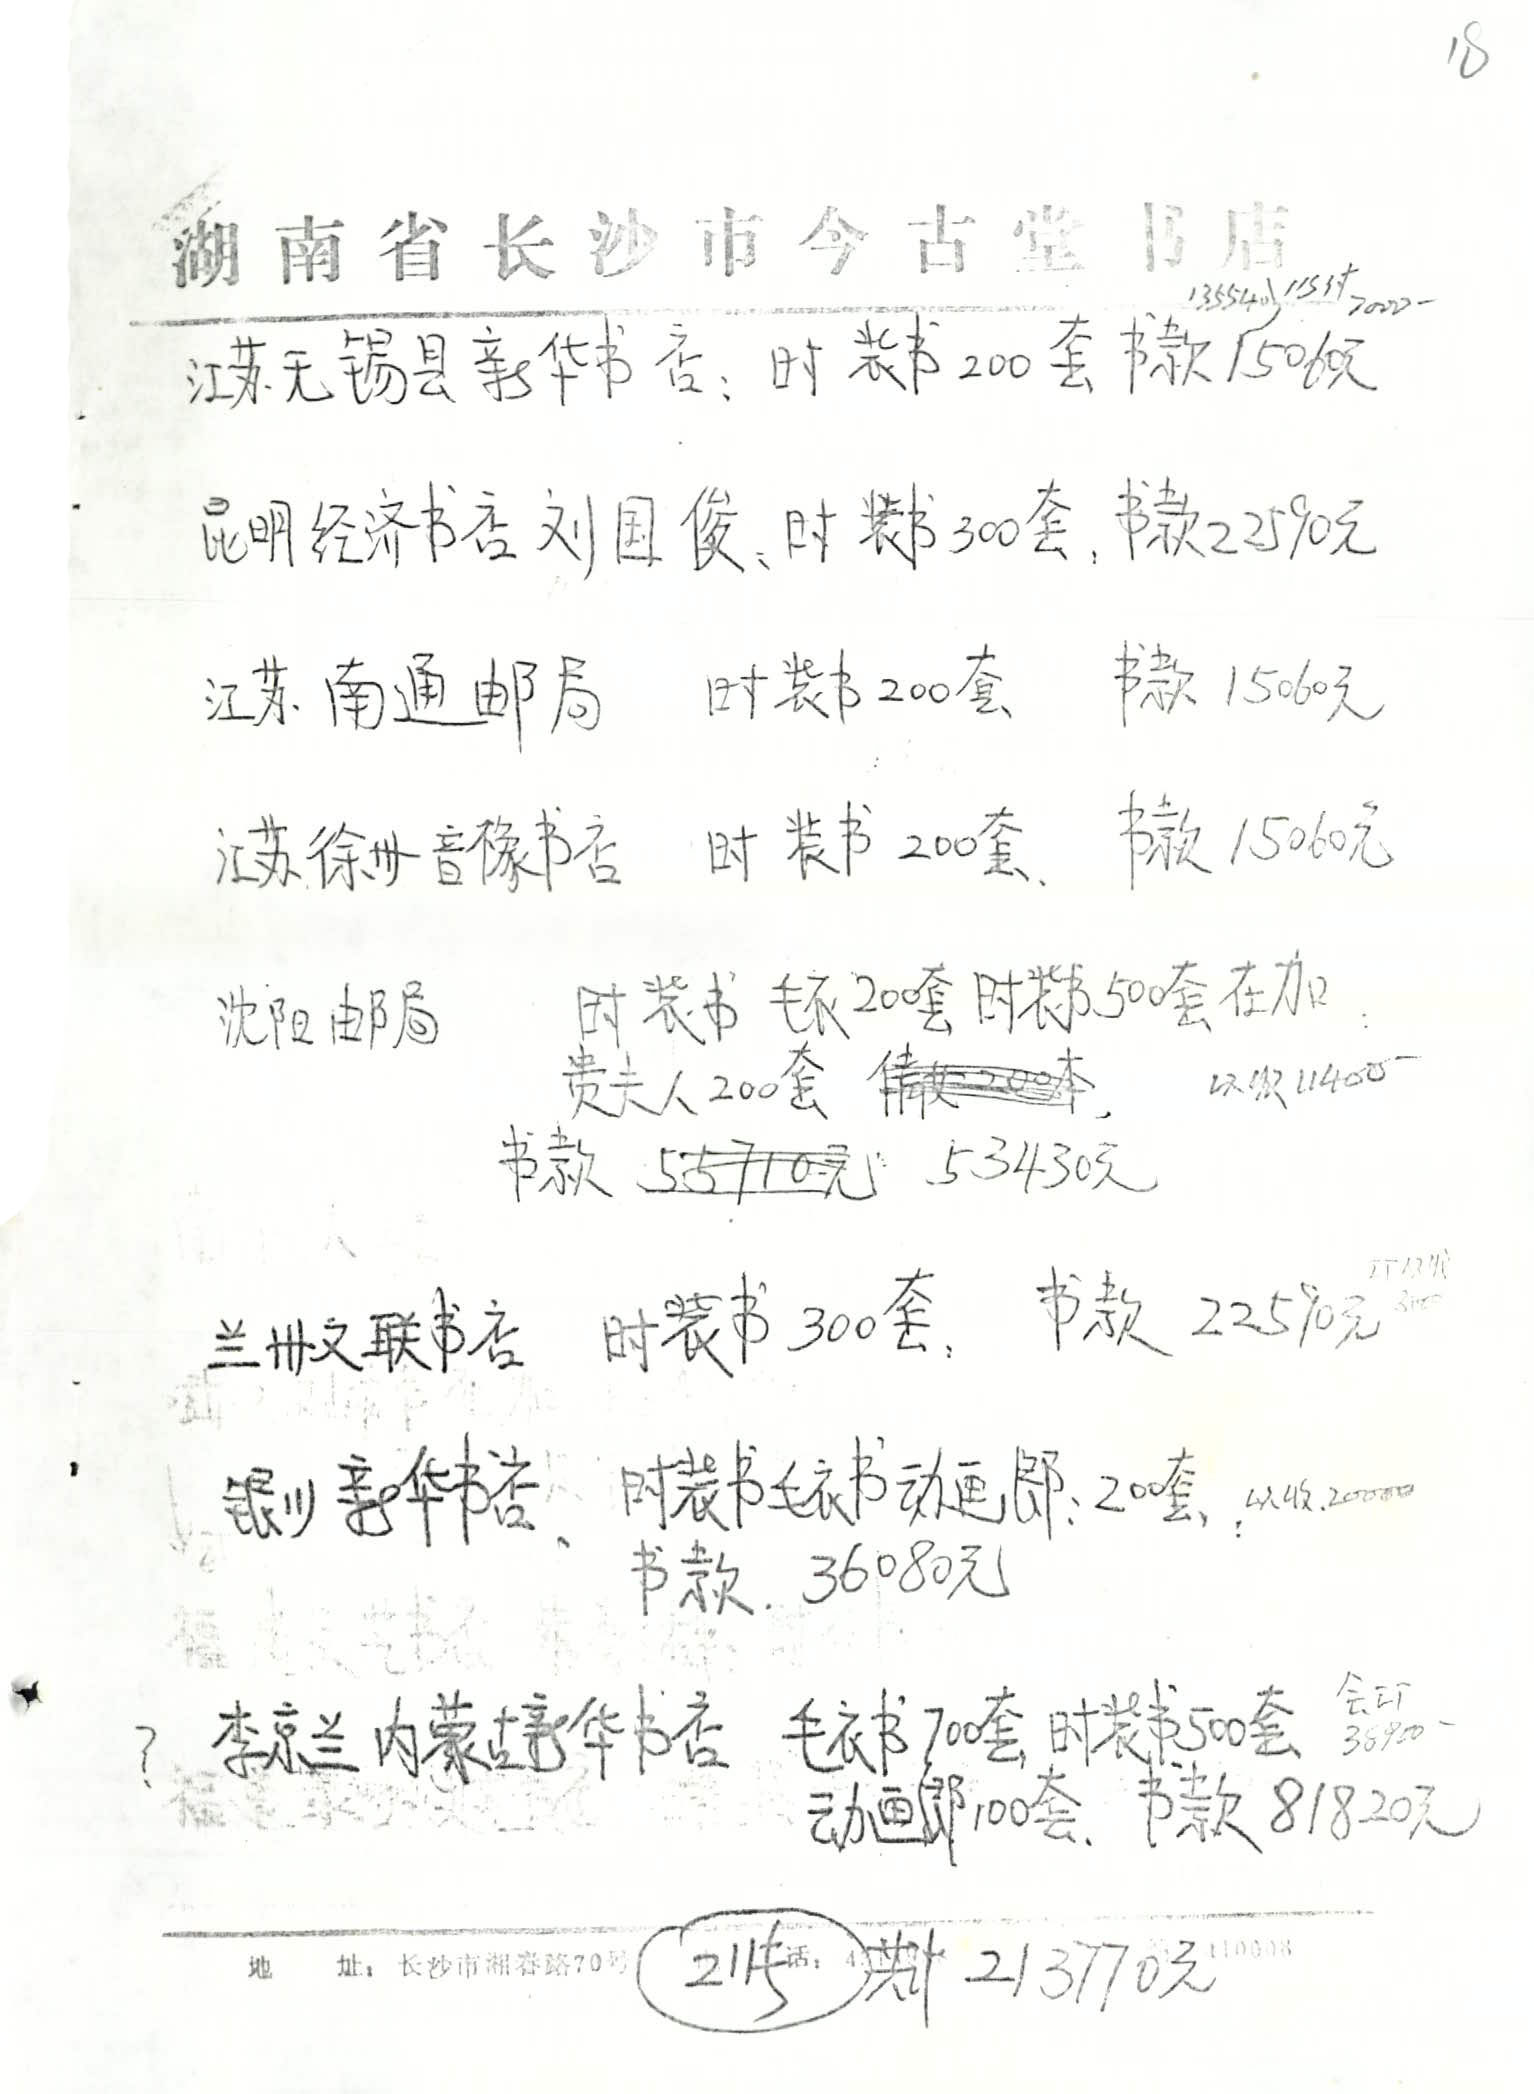 18
湖南省长沙市今古堂书店
7000-
江苏无锡县新华书店: 时装书200套 书款15060元
昆明经济书店刘国俊、时装书300套, 书款22590元
江苏南通邮局 时装书200套 书款15060元
江苏徐州音像书店 时装书200套、 书款15060元
沈阳邮局 时装书 毛衣200套 时装书500套在加
贵夫人200套 以收11400-
书款 55710元 53430元
兰州文联书店 时装书300套, 书款22590元
银川新华书店、 时装书毛衣书动画郎: 200套, 以收.20000
书款. 36080元
? 李京兰内蒙古新华书店 毛衣书700套 时装书500套
36900-
动画郎100套、 书款81820元
地 址: 长沙市湘春路70号 话:
共计 213770元